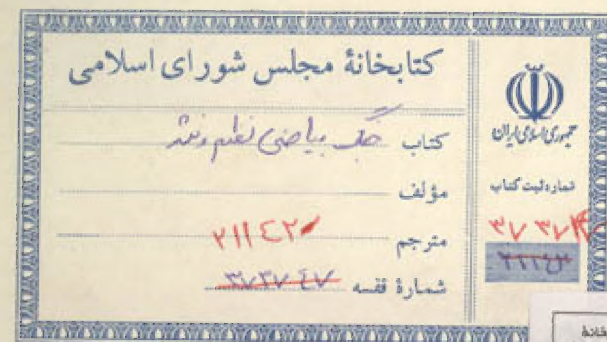 کتابخانهٔ مجلس شورای اسلامی
کتاب جنگ بیاضی نظم و نثر
مؤلف
مترجم
۲۱۱۴۲
شمارهٔ قفسه ۳۷۳۷۴۷
جمهوری اسلامی ایران
شماره ثبت کتاب
۲۱۱۴۳
خانهٔ